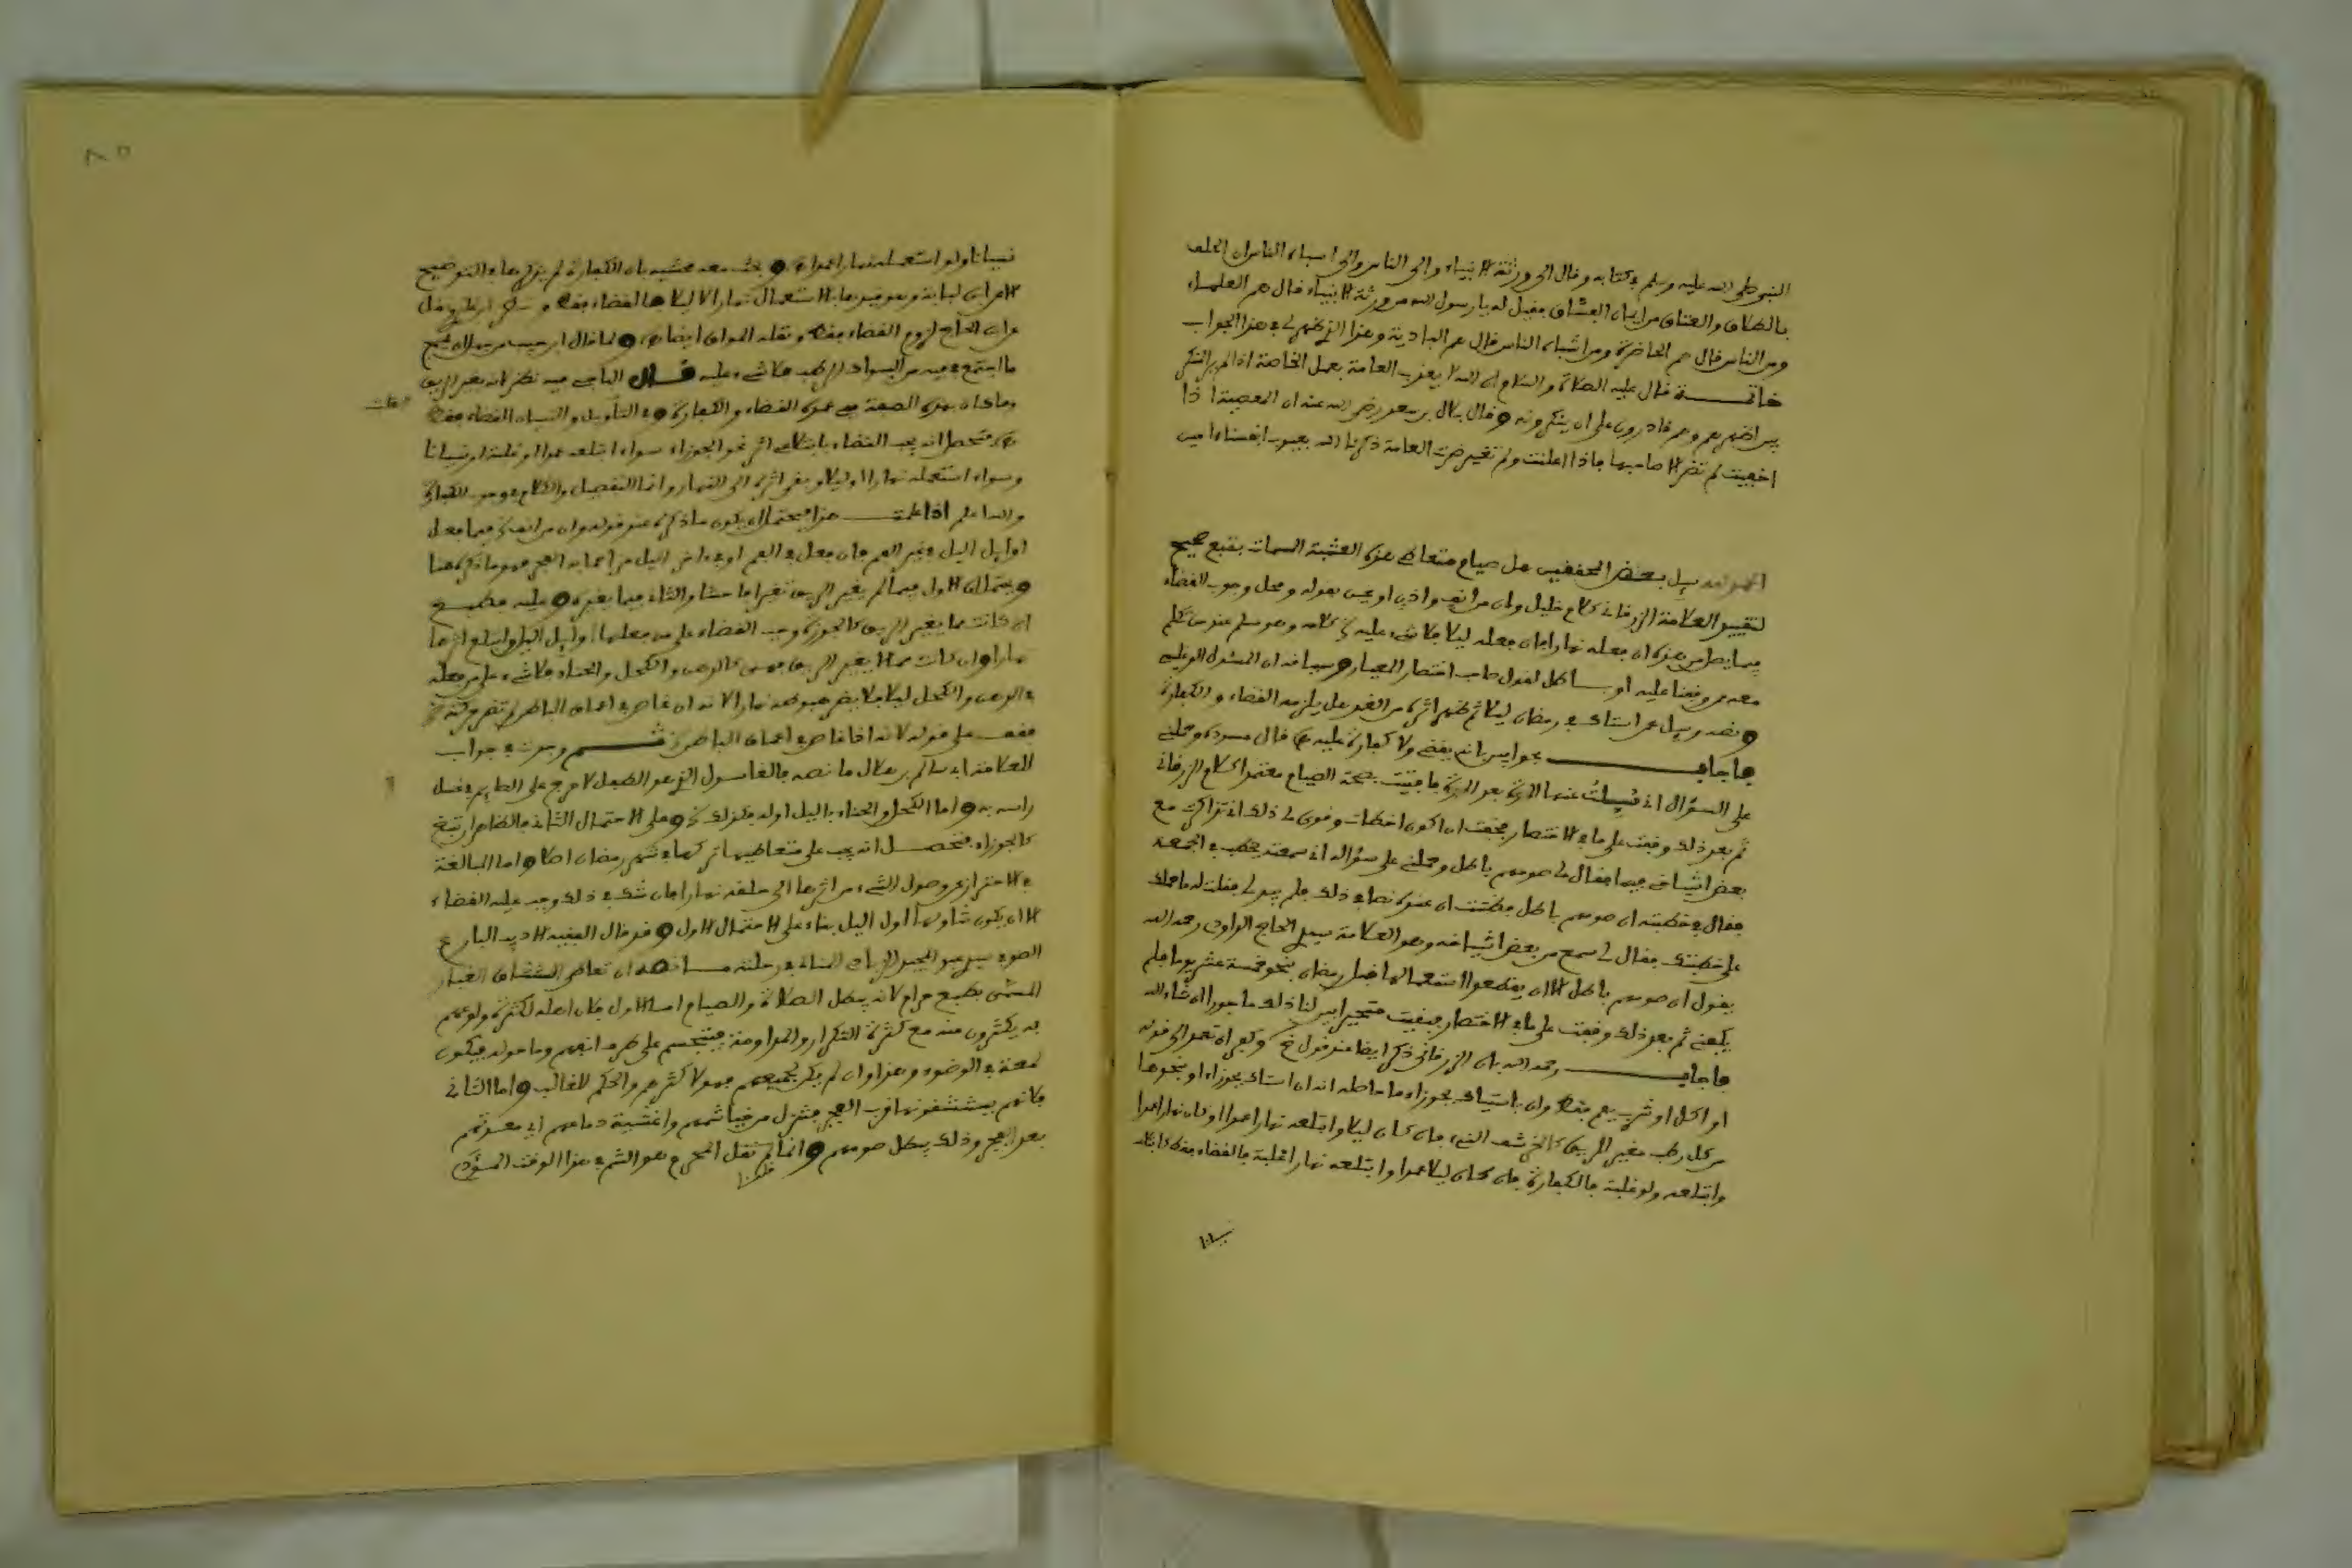 النبي صلى الله عليه وسلم في كتابه وقال الى ورثة الانبياء والى الناس والى اشباه الناس ان الحلف
بالطلاق والعتاق من ايمان الفساق فقيل له يا رسول الله من ورثة الانبياء قال هم العلماء
ومن الناس قال هم الحاضرة ومن اشباه الناس قال هم البادية وهذا الذي ظهر لي في هذا الجواب
خاتمة قال عليه الصلاة والسلام ان الله لا يعذب العامة بعمل الخاصة اذا لم ير المنكر
بين اظهرهم وهم قادرون على ان ينكرونه وقال بلال بن سعد رضي الله عنه ان المعصية اذا
اخفيت لم تضر الا صاحبها فاذا اعلنت ولم تغير ضرت العامة ذكرنا الله بعيوب انفسنا امين
الحمد لله سيل بعض المحققين هل صيام متعاطي هذه العشبة المسمات بقبع صحيح
لتقييد العلامة الزرقاني كلام خليل وان من انف واذن او عين بقوله ومحل وجوب القضاء
فيما يصل من هذه ان فعله نهارا فان فعله ليلا فلا شيء عليه كلامه وهو مسلم عند من تكلم
معه ممن وقفنا عليه او باطل لقول صاحب اختصار المعيار وسياقه ان المسئول ابو علي
ونصه وسيل عمن استاك في رمضان ليلا ثم ظهر اثره من الغد هل يلزمه القضاء والكفارة
فاجاب بجوابين بانه يقضي ولا كفارة عليه قال مسوده وحملني
على السؤال اني سيلت عنها المرة بعد المرة فافتيت بصحة الصيام معتمدا كلام الزرقاني
ثم بعد ذلك وقفت على ما في الاختصار فخفت ان اكون اخطات وقوى لي ذلك اني تذاكرت مع
بعض اشياخي فيها فقال لي صومهم باطل وحملني على سؤاله اني سمعته يخطب في الجمعة
فقال في خطبته ان صومهم باطل فظننت ان عنده نصا في ذلك فلم يبد لي فقلت له ما حملك
على خطبتك فقال لي سمع من بعض اشياخه وهو العلامة سيدي الحاج الداودي رحمه الله
يقول ان صومهم باطل الا ان يقطعوا استعمالها قبل رمضان بنحو خمسة عشر يوما فلم
يكفني ثم بعد ذلك وقفت على ما في الاختصار فبقيت متحيرا بين لنا ذلك ماجورا ان شاء الله
فاجاب رحمه الله بان الزرقاني ذكر ايضا عند قول خ وكفر ان تعمد الى قوله
او اكل او شرب بفم فقط وان باستياك بجوزاء ما حاصله انه ان استاك بجوزاء او بنحوها
من كل رطب مغير الريق فان كان ليلا وابتلعه نهارا عمدا او كان نهارا عمدا
وابتلعه ولو غلبة فالكفارة فان كان ليلا عمدا وابتلعه نهارا غلبة فالقضاء فقط
٨٥
نسيانا ولو استعمله نهارا عمدا وبحث معه محشيه بان الكفارة لم يذكرها في التوضيح
الا عن ابن لبابة وهو قيدها بالاستعمال نهارا لا ليلا فالقضاء فقط
عن ابن الحاج لزوم القضاء فقط ونقله المواق ايضا ولما قال ابن حبيب من جهل ان يمج
ما اجتمع في فيه من السواك الرطب فلا شيء عليه قال الباجي فيه نظر لانه يغير الريق
وما كان بهذه الصفة ففي عمده القضاء والكفارة وفي التاويل والنسيان القضاء فقط
فتحصل انه يجب القضاء بابتلاع اثر نحو الجوزاء سواء ابتلعه عمدا او غلبة او نسيانا
وسواء استعمله نهارا او ليلا وبقي اثره الى النهار وانما التفصيل والكلام في وجوب الكفارة
والله اعلم اذا علمت هذا فيحتمل ان يكون ما ذكره عند قوله وان من انف فيما فعل
اوايل اليل في غير الفم فان فعل في الفم او في اخر اليل من اعمابه الفجر فهو ما ذكره هنا
ويحتمل ان الاول فيما لم يغير الريق تغيرا ما حشا والثاني فيما يغيره وعليه فطبع
ان كانت مما يغير الريق كالجوزة وجب القضاء على من فعلها اوايل اليل وابتلع اثرها
نهارا وان كانت مما لا يغير الريق فهي كالدهن والكحل والحناء فلا شيء على من فعله
في الدهن والكحل ليلا فلا يضر هبوطه نهارا لانه ان غاص في اعماق الباطن لم تضر حركته
فقف على قوله لانه اذا غاص في اعماق الباطن ثم وجدت في جواب
للعلامة ابي سالم بن جلال ما نصه فالغاسول الذي هو الطفل لا حرج على الصايم في غسل
راسه به واما الكحل والحناء باليل اوله فكذلك وعلى الاحتمال الثاني فالظاهر ان تبغ
كالجوزاء فتحصل انه يجب على متعاطيها تركها في شهر رمضان اصلا واما المبالغة
في الاحتراز عن وصول الشيء من اثرها الى حلقه نهارا فان شك في ذلك وجب عليه القضاء
الا ان يكون تناولها اول اليل بناء على الاحتمال الاول وقد قال الفقيه الاديب البارع
الصوفي سيدي عبد المجيد الزبادي المنالي في رحلته ما نصه ان تعاطي استنشاق الغبار
المسمى بطبع حرام لانه يبطل الصلاة والصيام اما الاول فلان اهله لكثرة ولوعهم
به يكثرون منه مع كثرة التكرار والمداومة فيتجسم على طرف انفهم وما حوله فيكون
لمعة في الوضوء وهذا وان لم يكن لجميعهم فهو لاكثرهم والحكم للغالب واما الثاني
فلانهم يستنشقونها قرب الفجر فتنزل من خياشمهم واغشية دماغهم الى معدتهم
بعد الفجر وذلك يبطل صومهم وانما لم نقل المحرم هو الشم في هذا الوقت المودي